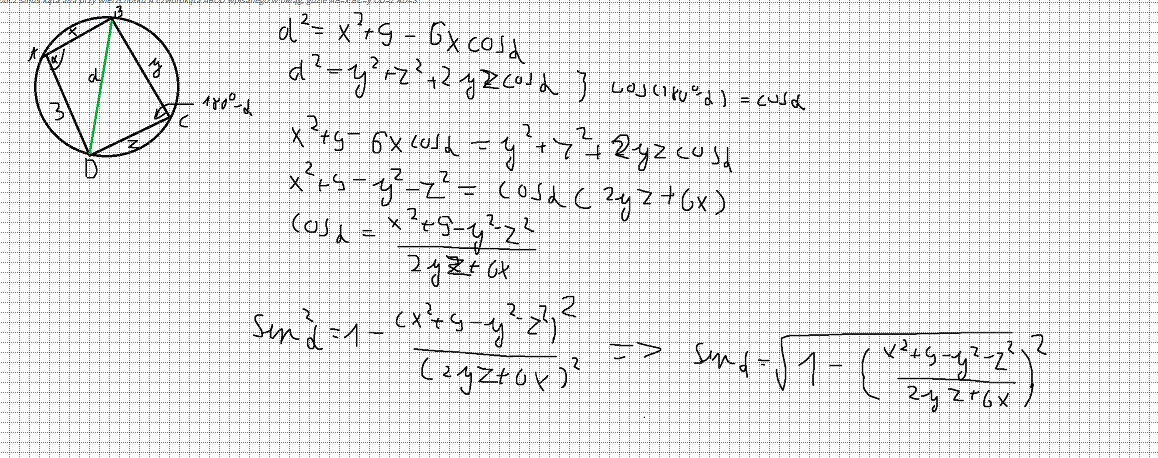 B
x
A
α
d
y
3
180°-α
z
C
D
d² = x² + 9 - 6x cosα
d² = y² + z² + 2yz cosα } cos(180°-α) = cosα
x² + 9 - 6x cosα = y² + z² + 2yz cosα
x² + 9 - y² - z² = cosα (2yz + 6x)
cosα = \frac{x² + 9 - y² - z²}{2yz + 6x}
sin²α = 1 - \frac{(x² + 9 - y² - z²)²}{(2yz + 6x)²} => sinα = \sqrt{1 - (\frac{x² + 9 - y² - z²}{2yz + 6x})²}